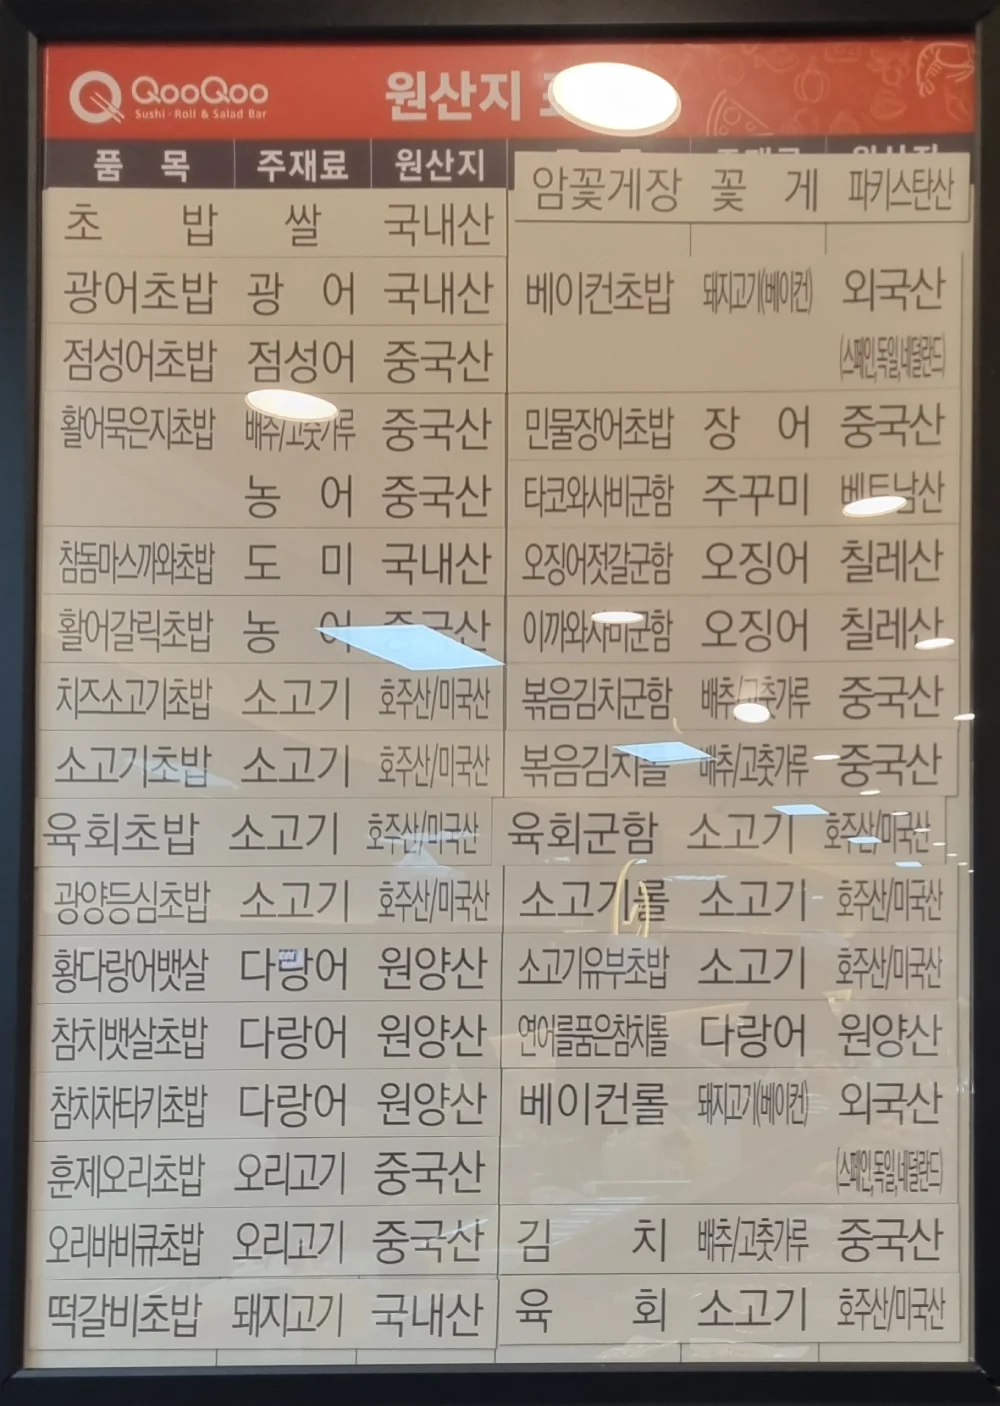 QooQoo
Sushi · Roll & Salad Bar
원산지
품 목 주재료 원산지
초 밥 쌀 국내산
광어초밥 광 어 국내산
점성어초밥 점성어 중국산
활어묵은지초밥 배추/고춧가루 중국산
농 어 중국산
참돔마스까와초밥 도 미 국내산
활어갈릭초밥 농 어 중국산
치즈소고기초밥 소고기 호주산/미국산
소고기초밥 소고기 호주산/미국산
육회초밥 소고기 호주산/미국산
광양등심초밥 소고기 호주산/미국산
황다랑어뱃살 다랑어 원양산
참치뱃살초밥 다랑어 원양산
참치차타키초밥 다랑어 원양산
훈제오리초밥 오리고기 중국산
오리바비큐초밥 오리고기 중국산
떡갈비초밥 돼지고기 국내산
주재료 원산지
암꽃게장 꽃 게 파키스탄산
베이컨초밥 돼지고기(베이컨) 외국산
(스페인,독일,네덜란드)
민물장어초밥 장 어 중국산
타코와사비군함 주꾸미 베트남산
오징어젓갈군함 오징어 칠레산
이까와사비군함 오징어 칠레산
볶음김치군함 배추/고춧가루 중국산
볶음김치롤 배추/고춧가루 중국산
육회군함 소고기 호주산/미국산
소고기롤 소고기 호주산/미국산
소고기유부초밥 소고기 호주산/미국산
연어를품은참치롤 다랑어 원양산
베이컨롤 돼지고기(베이컨) 외국산
(스페인,독일,네덜란드)
김 치 배추/고춧가루 중국산
육 회 소고기 호주산/미국산